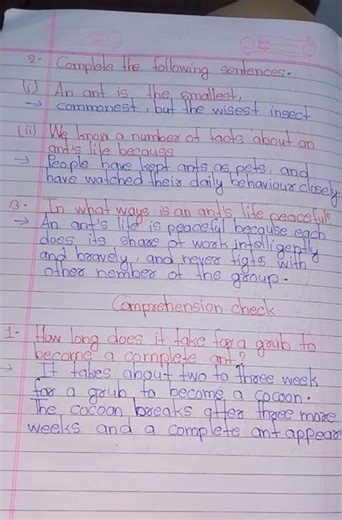 2. Complete the following sentences.
(i) An ant is the smallest,
→ commonest, but the wisest insect
(ii) We know a number of facts about an
ant's life because
→ People have kept ants as pets, and
have watched their daily behaviour closely.
3. In what ways is an ant's life peaceful?
→ An ant's life is peaceful because each
does its share of work intelligently
and bravely, and never figts with
other nember of the group.
Comprehension check
1. How long does it take for a grub to
become a complete ant?
→ It takes about two to three week
for a grub to become a cocoon.
The cocoon breaks after three more
weeks and a complete ant appear